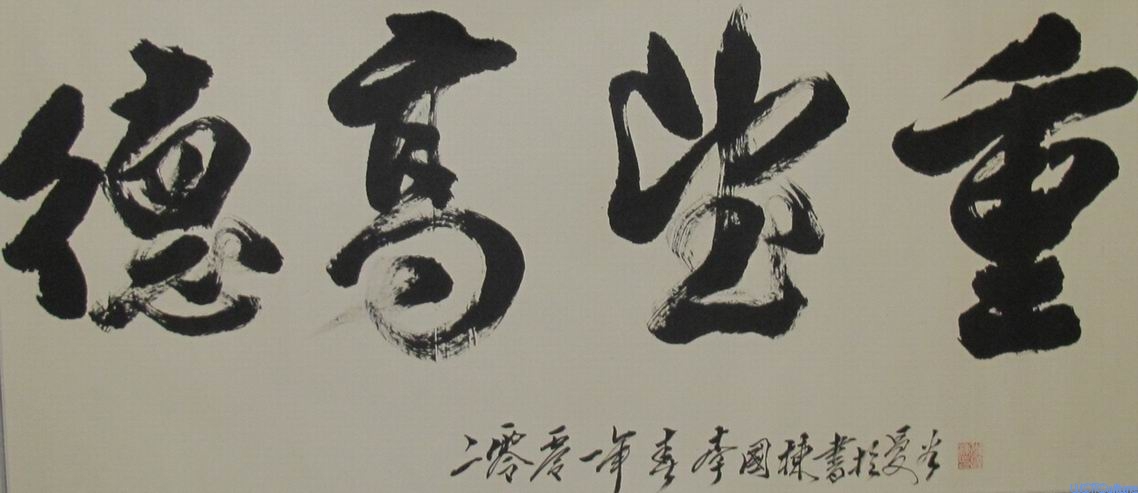 德高望重
二零零一年春李國棟書於